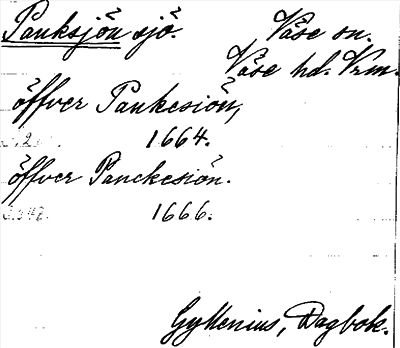 Panksjön sjö. Väse sn.
Väse hd. Vrm.
öffver Pankesiön,
1664.
öffver Panckesiön.
1666.
Gyllenius, Dagbok.